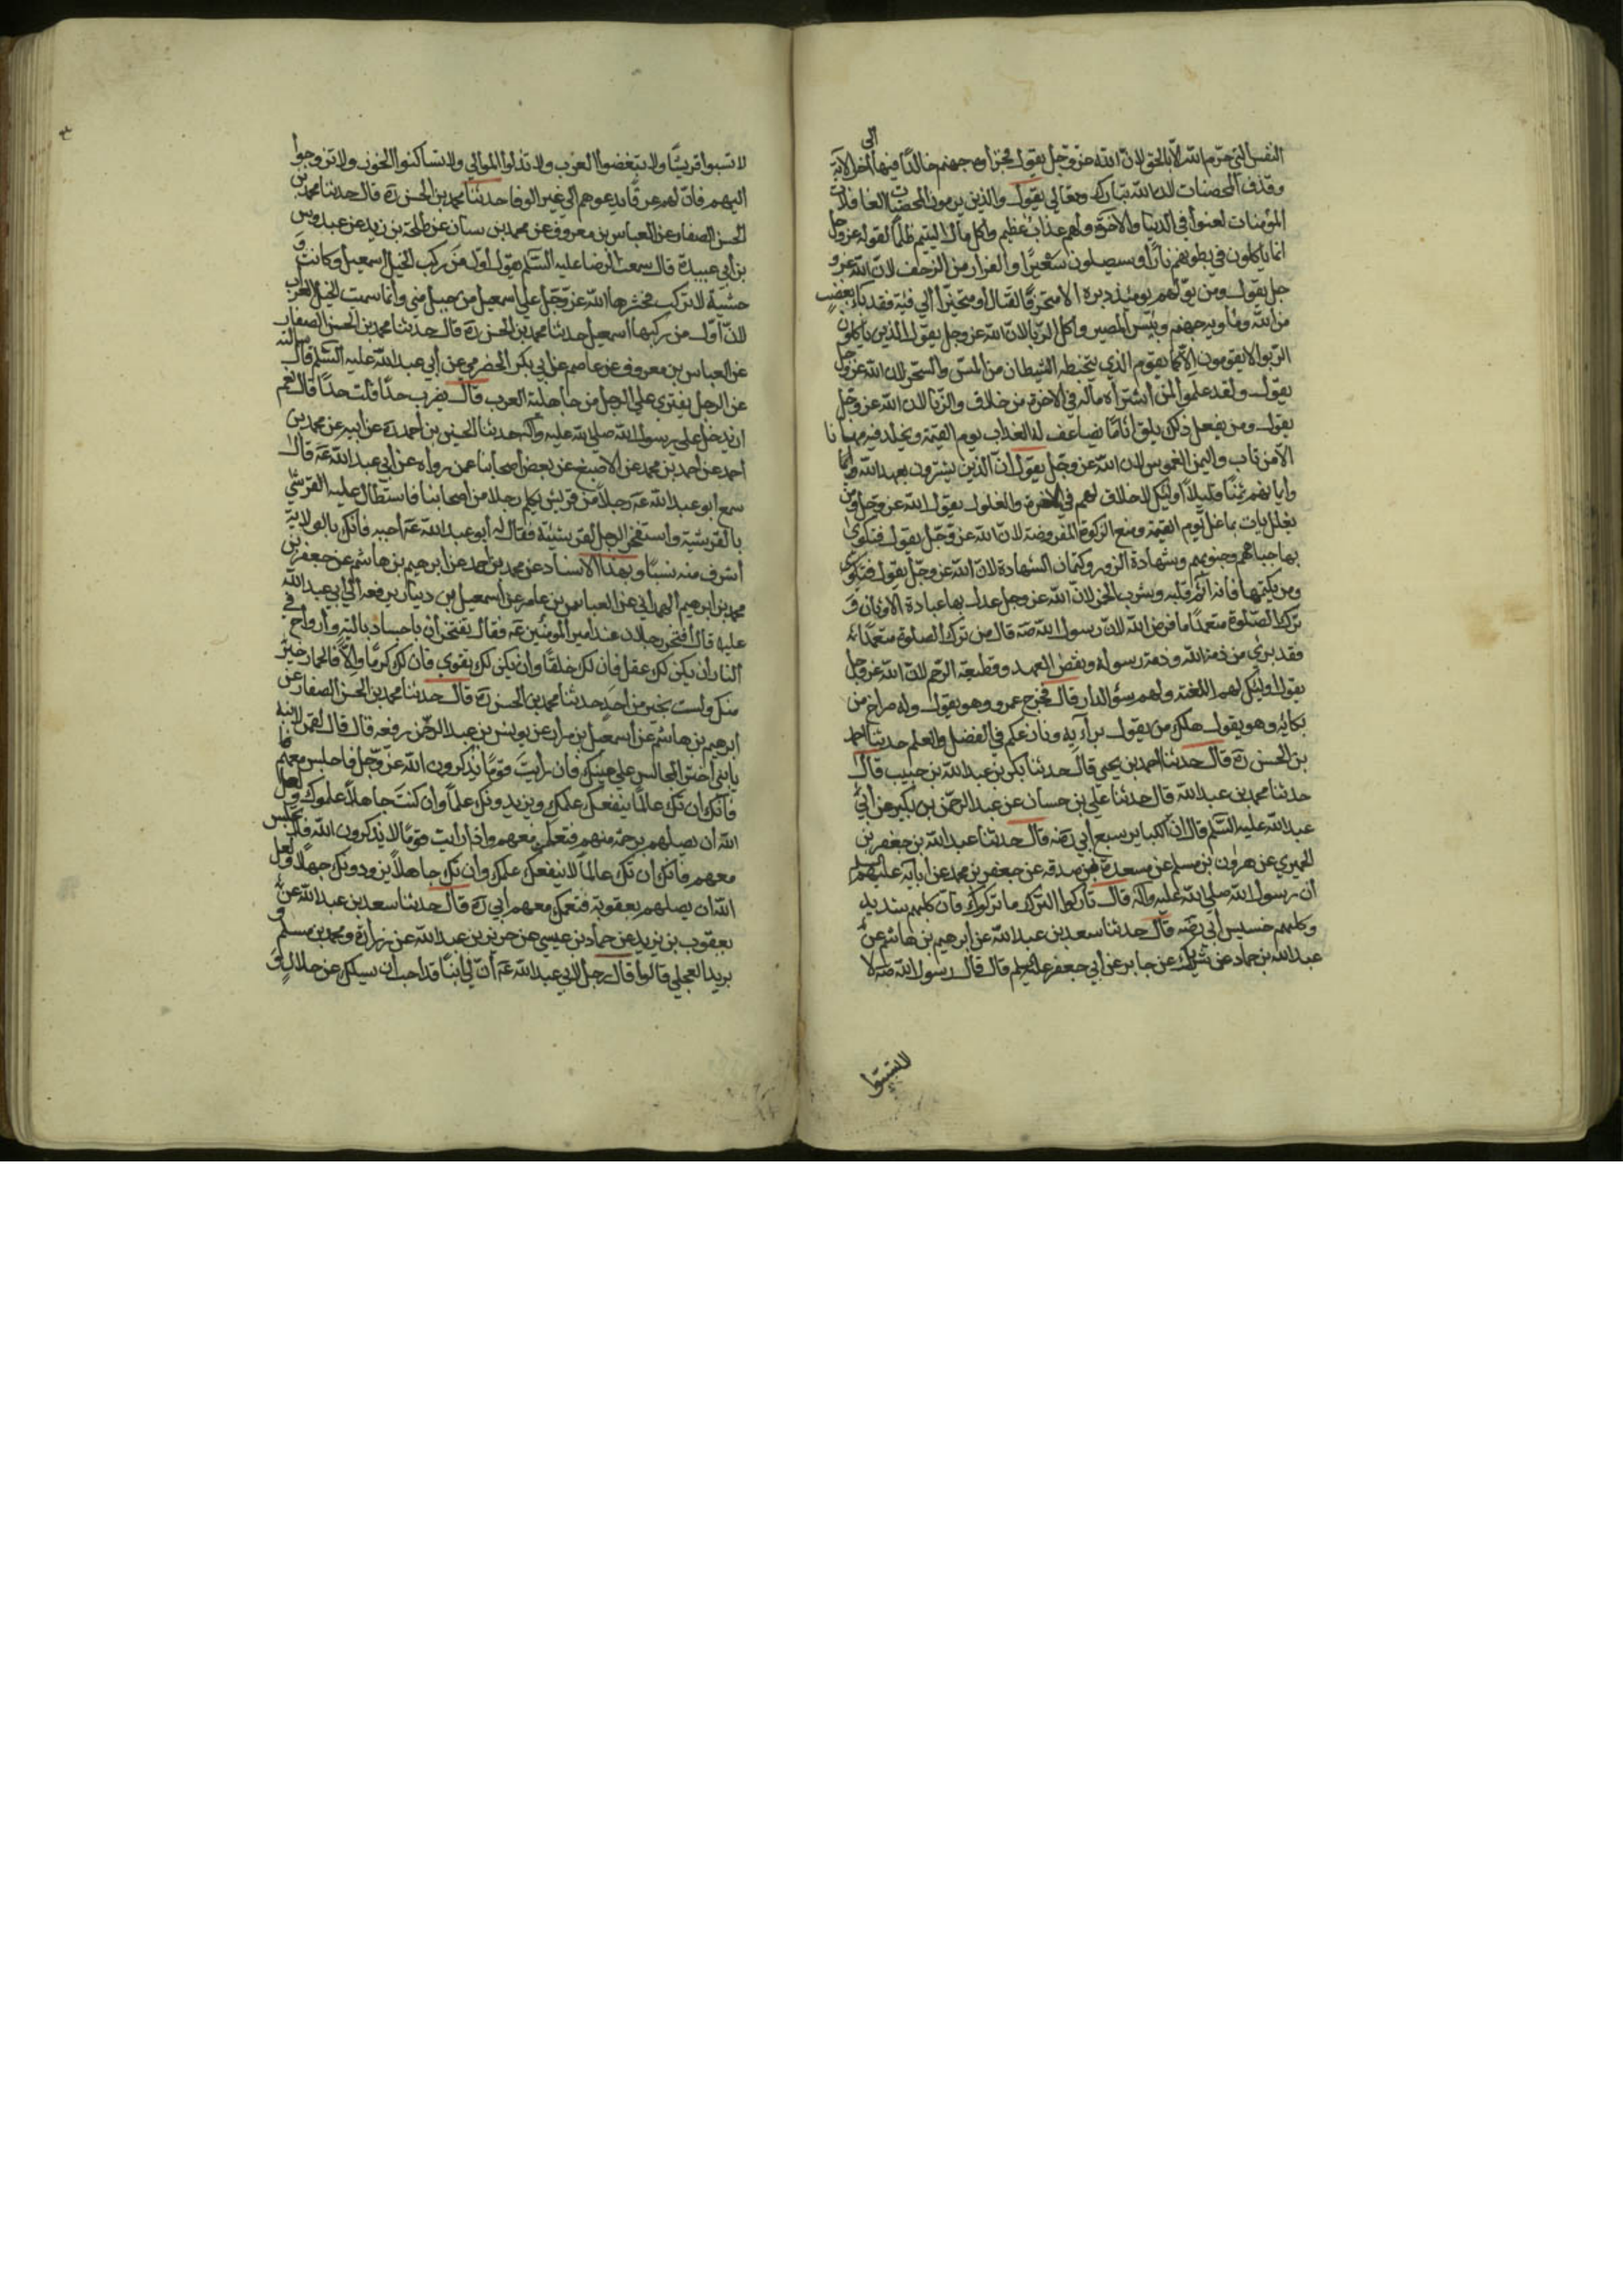 النفس التي حرم الله الا بالحق لان الله عز وجل يقول فجزاوه جهنم خالدا فيها الى اخر الاية
وقذف المحصنات لان الله تبارك وتعالى يقول والذين يرمون المحصنات الغافلات
المؤمنات لعنوا في الدنيا والاخرة ولهم عذاب عظيم واكل مال اليتيم ظلما لقوله عز وجل
انما ياكلون في بطونهم نارا وسيصلون سعيرا والفرار من الزحف لان الله عز و
جل يقول ومن يولهم يومئذ دبره الا متحرفا لقتال او متحيزا الى فئة فقد باء بغضب
من الله وماويه جهنم وبئس المصير واكل الربا لان الله عز وجل يقول الذين ياكلون
الربوا لا يقومون الا كما يقوم الذي يتخبطه الشيطان من المس والسحر لان الله عز وجل
يقول ولقد علموا لمن اشتراه ماله في الاخرة من خلاق والزنا لان الله عز وجل
يقول ومن يفعل ذلك يلق اثاما يضاعف له العذاب يوم القيمة ويخلد فيه مهانا
الا من تاب واليمين الغموس لان الله عز وجل يقول ان الذين يشترون بعهد الله
وايمانهم ثمنا قليلا اولئك لا خلاق لهم في الاخرة والغلول يقول الله عز وجل ومن
يغلل يات بما غل يوم القيمة ومنع الزكوة المفروضة لان الله عز وجل يقول فتكوى
بها جباههم وجنوبهم وشهادة الزور وكتمان الشهادة لان الله عز وجل يقول
ومن يكتمها فانه اثم قلبه وشرب الخمر لان الله عز وجل عدل بها عبادة الاوثان و
ترك الصلوة متعمدا ما فرض الله لان رسول الله صه قال من ترك الصلوة متعمدا
فقد برئ من ذمة الله وذمة رسوله ونقض العهد وقطيعة الرحم لان الله عز وجل
يقول اولئك لهم اللعنة ولهم سؤ الدار قال فخرج عمرو وهو يقول وله صراخ من
بكائه وهو يقول هلك من يقول برايه ونازعكم في الفضل والعلم حدثنا احمد
بن الحسن ره قال حدثنا احمد بن يحيى قال حدثنا بكر بن عبد الله بن حبيب قال
حدثنا محمد بن عبد الله قال حدثنا علي بن حسان عن عبد الرحمن بن كثير عن ابي
عبد الله عليه السلم قال ان الكباير سبع ابي رضه قال حدثنا عبد الله بن جعفر بن
الحميري عن هرون بن مسلم عن مسعدة بن صدقه عن جعفر بن محمد عن ابايه عليهم السلم
ان رسول الله صلى الله عليه واله قال تاركوا الترك ما تركوكم فان كلبهم شديد
وكلبهم خسيس ابي رضه قال حدثنا سعد بن عبد الله عن ابرهيم بن هاشم عن
عبد الله بن حماد عن شريك عن جابر عن ابي جعفر عليه السلم قال قال رسول الله صه لا
لا تسبوا
لا تسبوا قريشا ولا تبغضوا العرب ولا تذلوا الموالي ولا تساكنوا الخوز ولا تزوجوا
اليهم فان لهم عرقا يدعوهم الى غير الوفا حدثنا محمد بن الحسن ره قال حدثنا محمد بن
الحسن الصفار عن العباس بن معروف عن محمد بن سنان عن طلحة بن زيد عن عبدوس
بن ابي عبيدة قال سمعت الرضا عليه السلم يقول اول من ركب الخيل اسمعيل وكانت و
حشية لا تركب فحشرها الله عز وجل على اسمعيل من جبل منى وانما سميت الخيل العراب
لان اول من ركبها اسمعيل حدثنا محمد بن الحسن ره قال حدثنا محمد بن الحسن الصفار
عن العباس بن معروف عن عاصم عن ابي بكر الحضرمي عن ابي عبد الله عليه السلم قال سالته
عن الرجل يفتري على الرجل من جاهلية العرب قال يضرب حدا قلت حدا قال نعم
ان يدخل على رسول الله صلى الله عليه واله حدثنا الحسين بن احمد ره عن ابيه عن محمد بن
احمد عن احمد بن محمد عن الاصبغ عن بعض اصحابنا عمن رواه عن ابي عبد الله عه قال
سمع ابو عبد الله عه رجلا من قريش يكلم رجلا من اصحابنا فاستطال عليه القرشي
بالقرشية واستخفر الرجل لقرشيته فقال له ابو عبد الله عه اجبه فانك بالولاية
اشرف منه نسبا وبهذا الاسناد عن محمد بن احمد عن ابرهيم بن هاشم عن جعفر بن
محمد بن ابرهيم الهمداني عن العباس بن عامر عن اسمعيل بن دينار يرفعه الى ابي عبد الله
عليه قال افتخر رجلان عند امير المومنين عه فقال تفتخران باجساد بالية وارواح في
النار ان يكن لك عقل فان لك خلقا وان يكن لك تقوى فان لك كرما والا فالحمار خير
منك ولست بخير من احد حدثنا محمد بن الحسن ره قال حدثنا محمد بن الحسن الصفار عن
ابرهيم بن هاشم عن اسمعيل بن مرار عن يونس بن عبد الرحمن رفعه قال قال لقمن لابنه
يا بني اختر المجالس على عينك فان رايت قوما يذكرون الله عز وجل فاجلس معهم
فانك ان تك عالما ينفعك علمك ويزيدونك علما وان كنت جاهلا علموك ولعل
الله ان يصلهم برحمة منهم فتعمك معهم واذا رايت قوما لا يذكرون الله فلا تجلس
معهم فانك ان تك عالما لا ينفعك علمك وان تك جاهلا يزودونك جهلا ولعل
الله ان يصلهم بعقوبة فتعمك معهم ابي ره قال حدثنا سعد بن عبد الله عن
يعقوب بن يزيد عن حماد بن عيسى عن حريز بن عبد الله عن زرارة ومحمد بن مسلم و
بريد العجلي قالوا قال رجل لابي عبد الله عه ان لي ابنا قد احب ان يسئلك عن حلال و